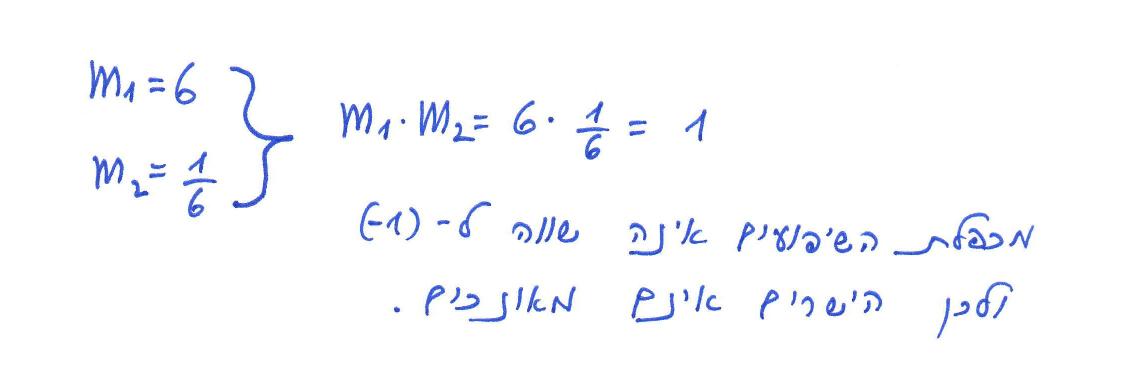 m₁ = 6
m₂ = 1/6
m₁ · m₂ = 6 · 1/6 = 1
מכפלת השיפועים אינה שווה ל- (-1)
ולכן הישרים אינם מאונכים.